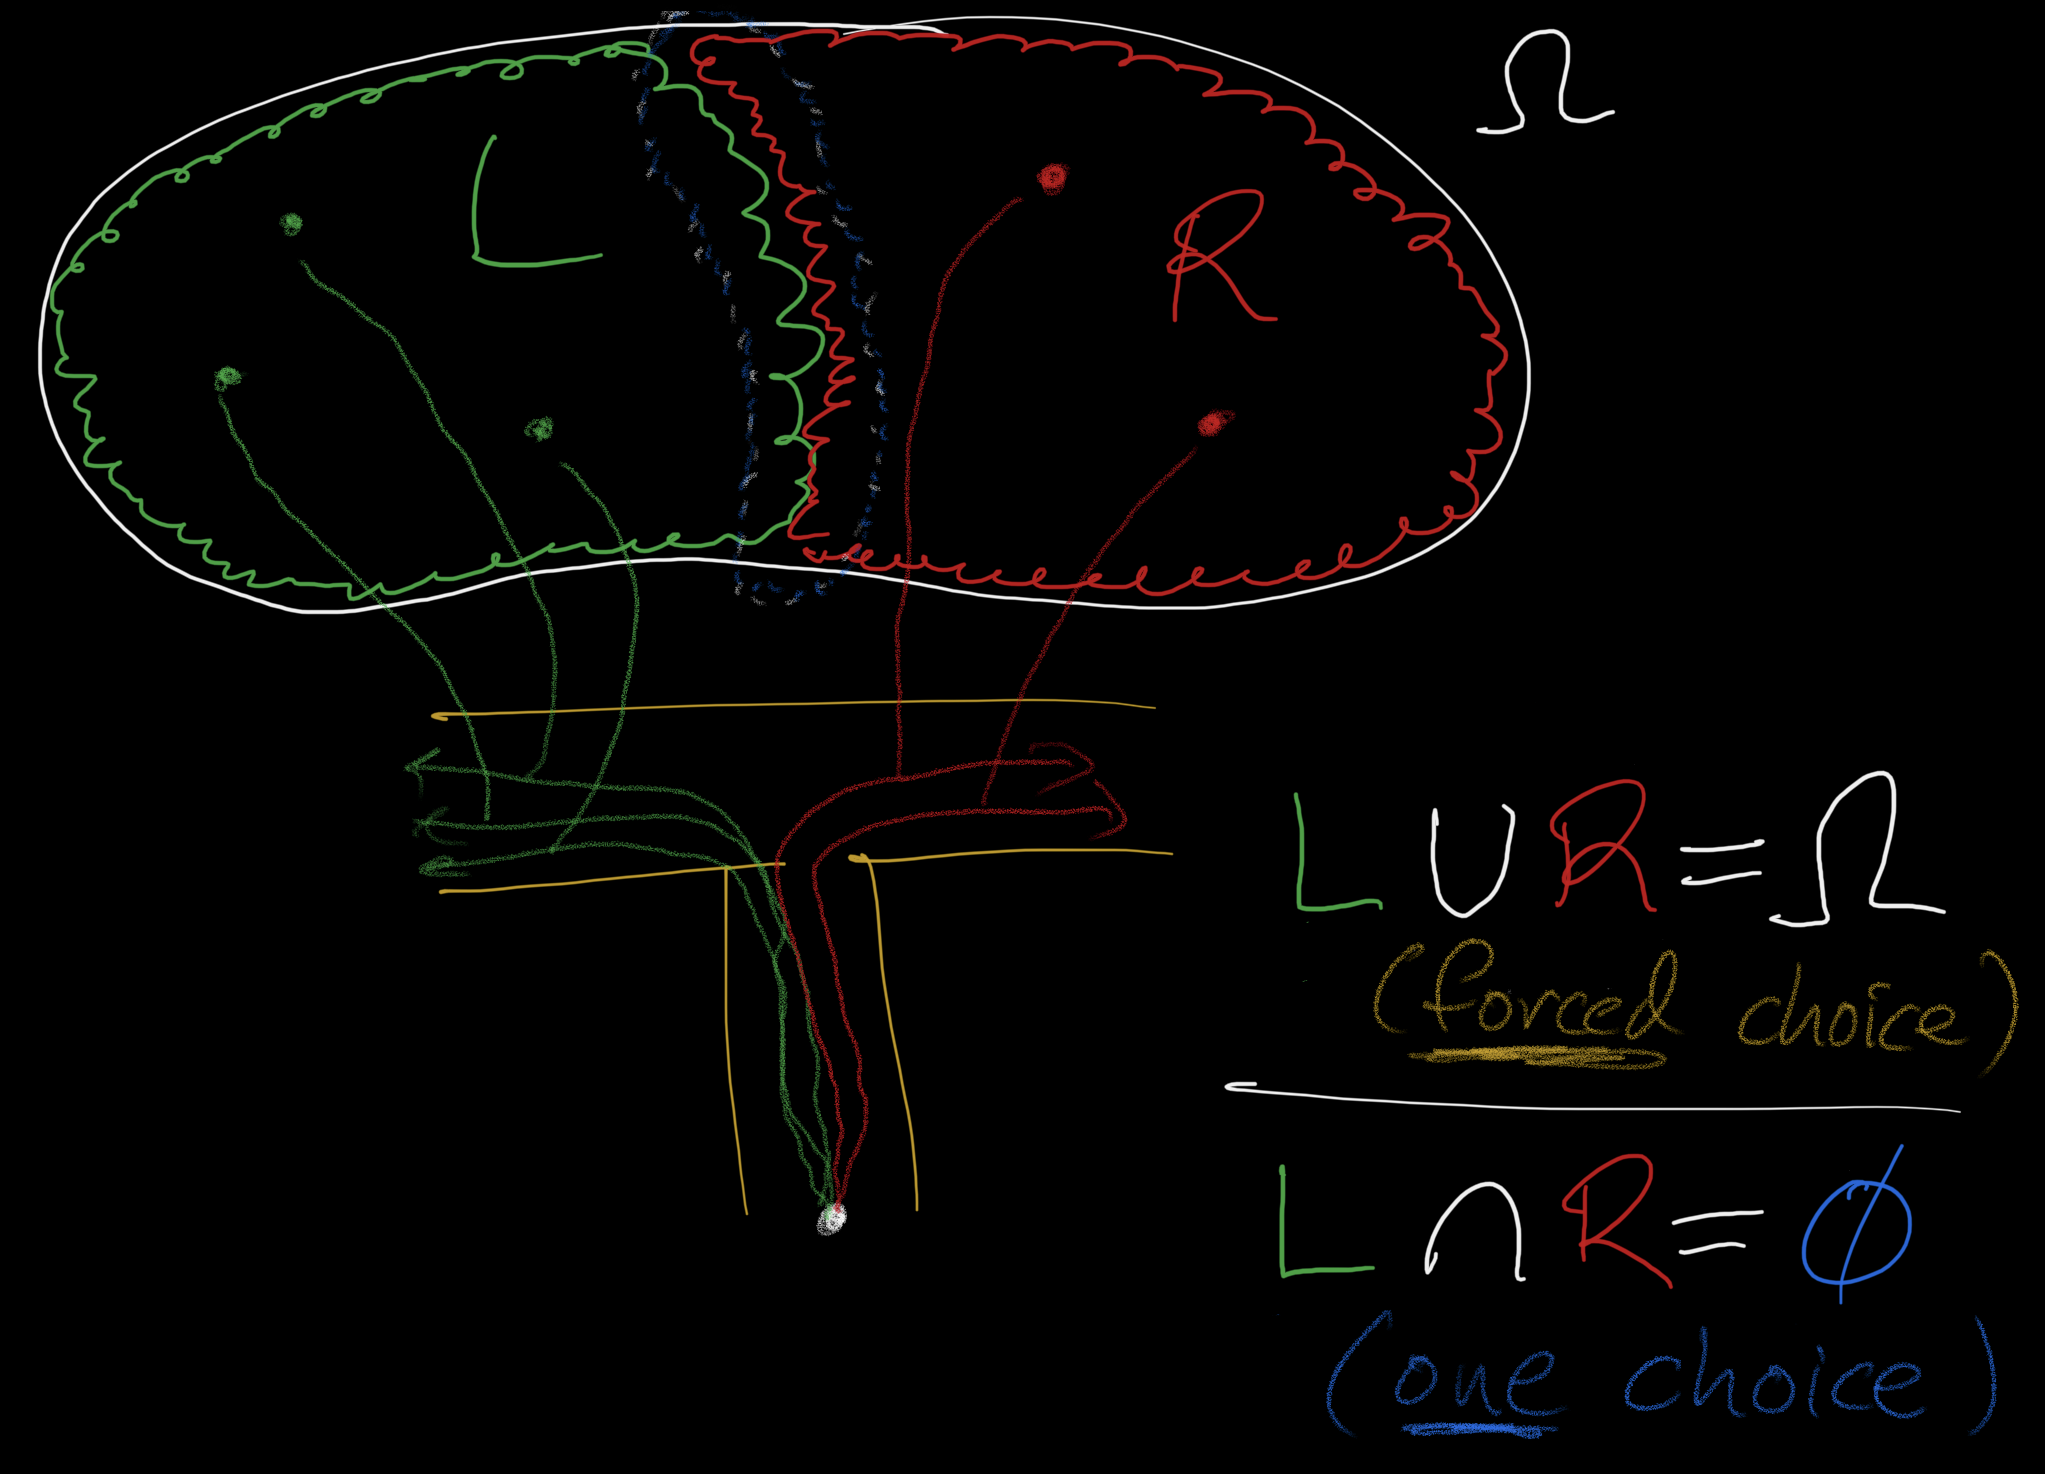 Ω
L
R
L ∪ R = Ω
(forced choice)
L ∩ R = ∅
(one choice)